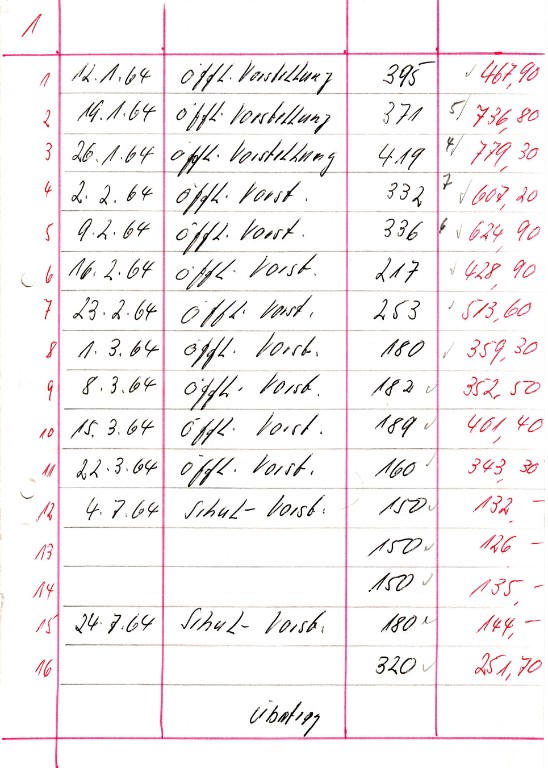 1
1 12.1.64 öffl. Vorstellung 395 467,90
2 19.1.64 öffl. Vorstellung 371 5/ 736,80
3 26.1.64 öffl. Vorstellung 419 4/ 779,30
4 2.2.64 öffl. Vorst. 332 7 607,20
5 9.2.64 öffl. Vorst. 336 6 624,90
6 16.2.64 öffl. Vorst. 217 428,90
7 23.2.64 öffl. Vorst. 253 513,60
8 1.3.64 öffl. Vorst. 180 359,30
9 8.3.64 öffl. Vorst. 182 352,50
10 15.3.64 öffl. Vorst. 189 401,40
11 22.3.64 öffl. Vorst. 160 343,30
12 4.7.64 Schul-Vorst. 150 132,-
13 150 126 -
14 150 135,-
15 24.7.64 Schul-Vorst. 180 144,-
16 320 251,70
Übertrag